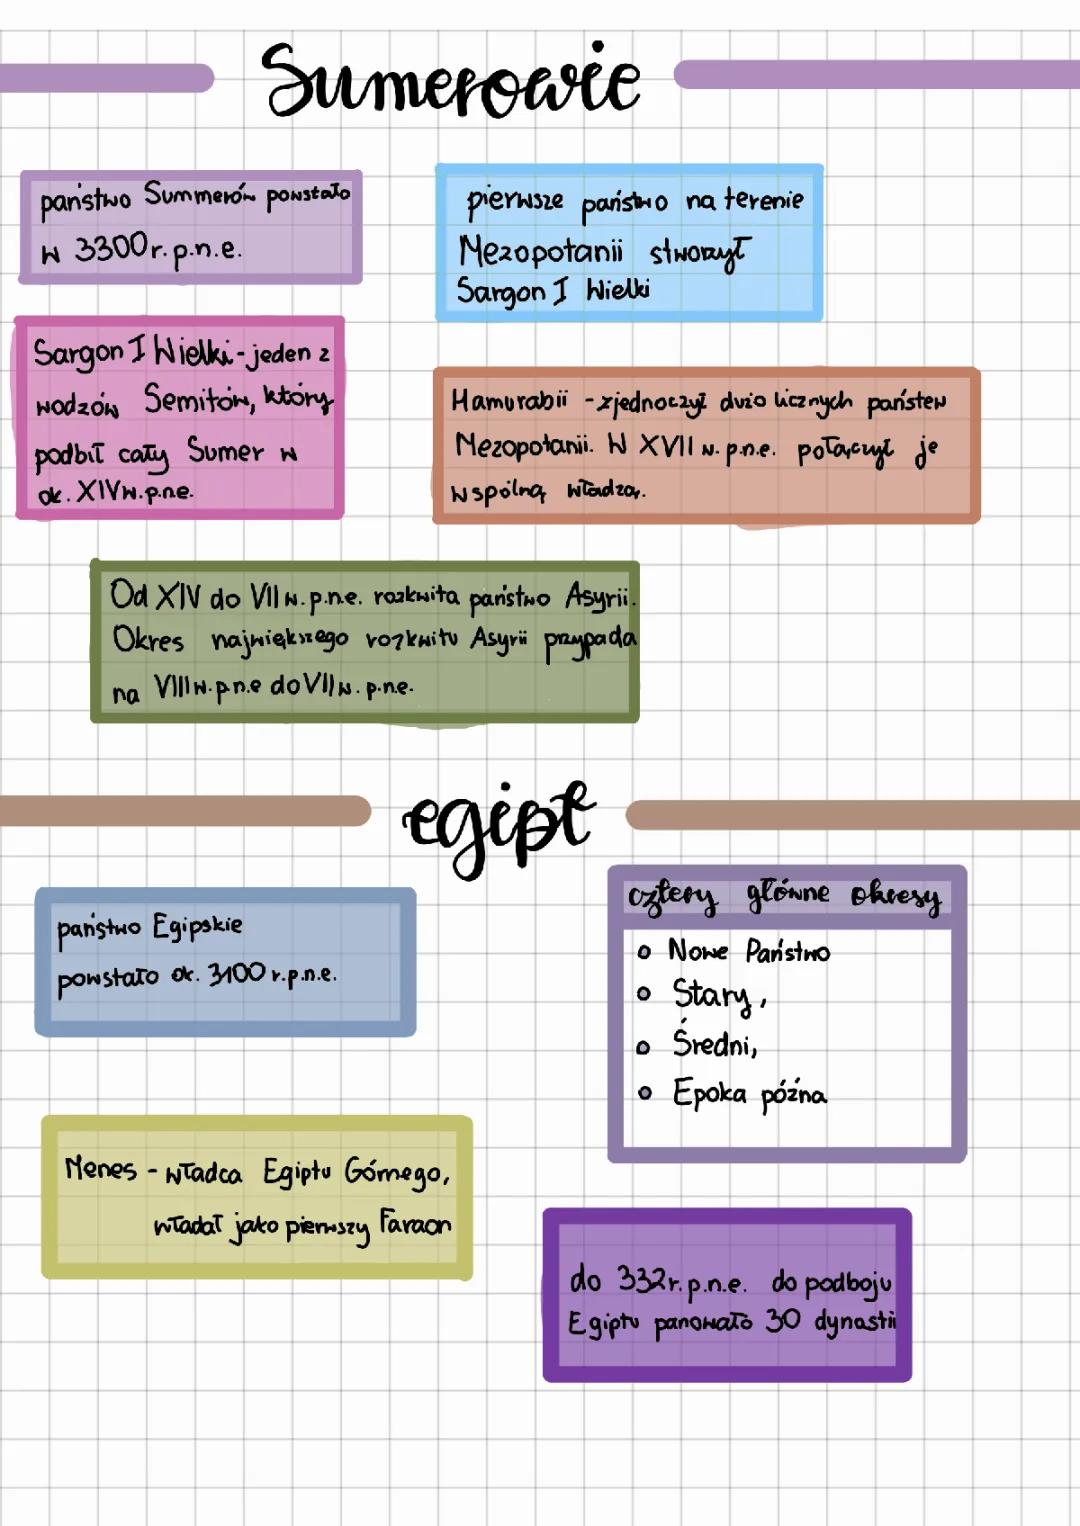 Sumerowie
państwo Summerów powstało
w 3300r.p.n.e.
pierwsze państwo na terenie
Mezopotanii stworzył
Sargon I Wielki
Sargon I Wielki - jeden z
wodzów Semitów, który
podbił cały Sumer w
ok. XIVw.p.n.e.
Hamurabii - zjednoczył dużo licznych państew
Mezopotanii. W XVII w. p.n.e. połączył je
wspólną władzą.
Od XIV do VII w. p.n.e. rozkwita państwo Asyrii.
Okres największego rozkwitu Asyrii przypada
na VIII w. p.n.e do VII w. p.n.e.
egipt
państwo Egipskie
powstało ok. 3100 r.p.n.e.
cztery główne okresy
Nowe Państwo
Stary,
Średni,
Epoka późna
Menes - władca Egiptu Górnego,
władał jako pierwszy Faraon
do 332r.p.n.e. do podboju
Egiptu panowało 30 dynastii